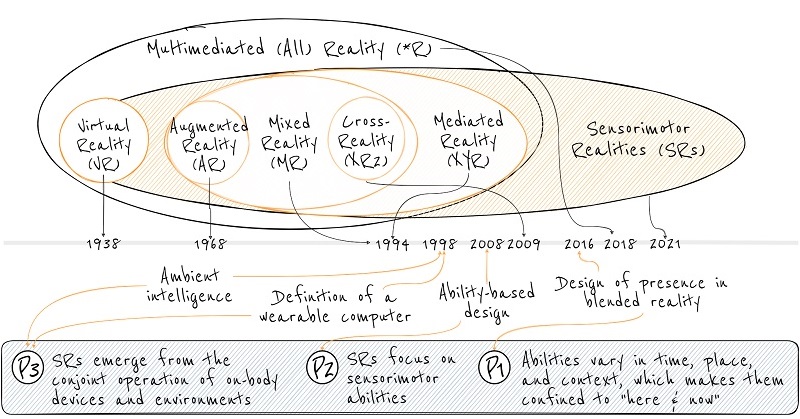 Multimediated (All) Reality (*R)
Virtual
Reality
(VR)
Augmented
Reality
(AR)
Mixed
Reality
(MR)
Cross-
Reality
(XR2)
Mediated
Reality
(XYR)
Sensorimotor
Realities (SRs)
1938
1968
1994
1998
2008
2009
2016
2018
2021
Ambient
intelligence
Definition of a
wearable computer
Ability-based
design
Design of presence in
blended reality
P3
SRs emerge from the
conjoint operation of on-body
devices and environments
P2
SRs focus on
sensorimotor
abilities
P1
Abilities vary in time, place,
and context, which makes them
confined to "here & now"